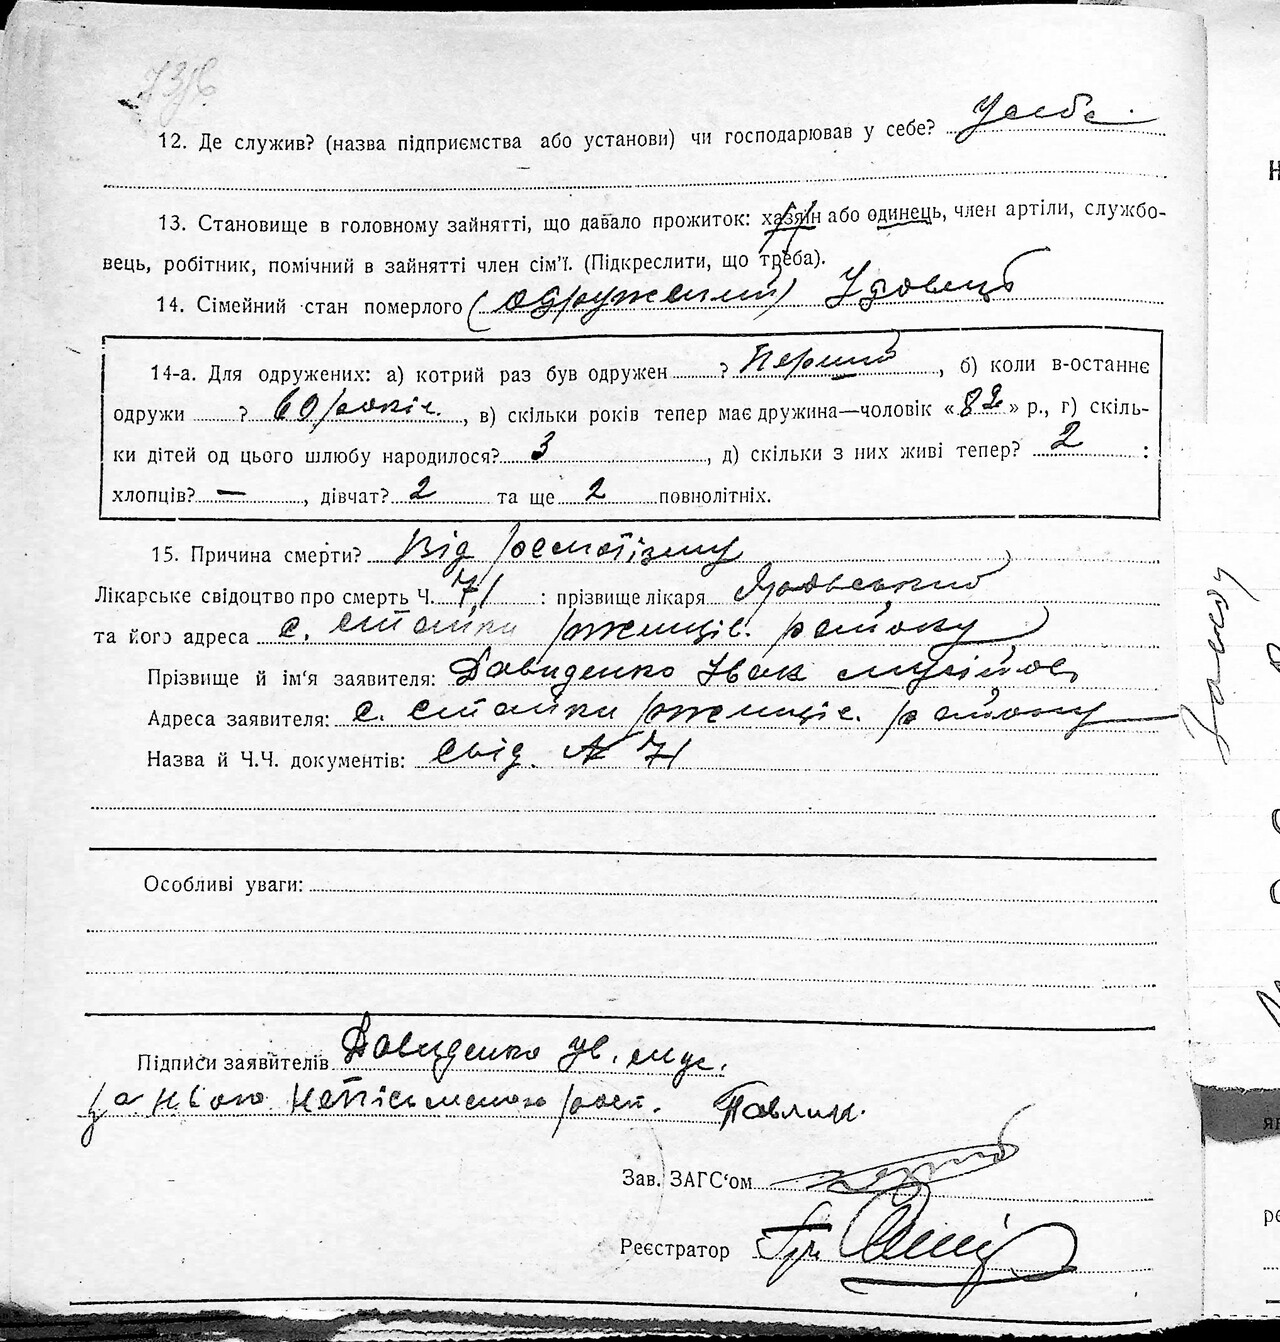 12. Де служив? (назва підприємства або установи) чи господарював у себе? У себе
13. Становище в головному зайнятті, що давало прожиток: хазяїн або одинець, член артіли, службо-
вець, робітник, помічний в зайнятті член сім'ї. (Підкреслити, що треба).
14. Сімейний стан померлого (одружений) Удовець
14-а. Для одружених: а) котрий раз був одружен ? Перший, б) коли в-останнє
одружи ? 60 років., в) скільки років тепер має дружина—чоловік «82» р., г) скіль-
ки дітей од цього шлюбу народилося? 3, д) скільки з них живі тепер? 2 :
хлопців? —, дівчат? 2 та ще 2 повнолітніх.
15. Причина смерти? Від ревматізму
Лікарське свідоцтво про смерть Ч. 71 : прізвище лікаря
та його адреса с. Стайки Ржищів. району
Прізвище й ім'я заявителя: Давиденко Іван Мусійов
Адреса заявителя: с. Стайки Ржищів. району
Назва й Ч.Ч. документів: Свід. № 71
Особливі уваги:
Підписи заявителів Давиденко Ів. Мус.
за нього непісьменого росп. Павлик.
Зав. ЗАГС'ом
Реєстратор